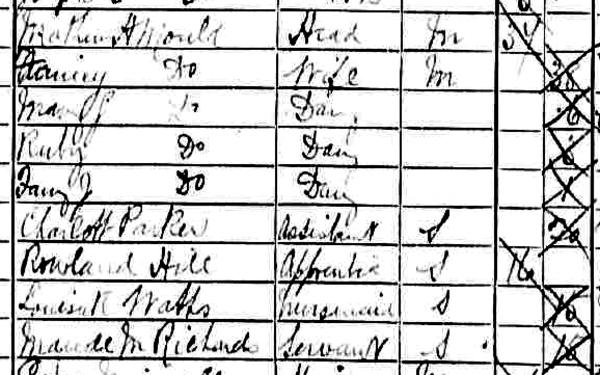 Mathew H Mould Head M 34
Do Wife M
Mary J Do Daug
Ruby Do Daug 6
Do Daug 1
Charlott Parker Assistant S 20
Rowland Hill Apprentice S 16
Louisa K Watts Nursemaid S 16
Maude M Richards Servant S 16